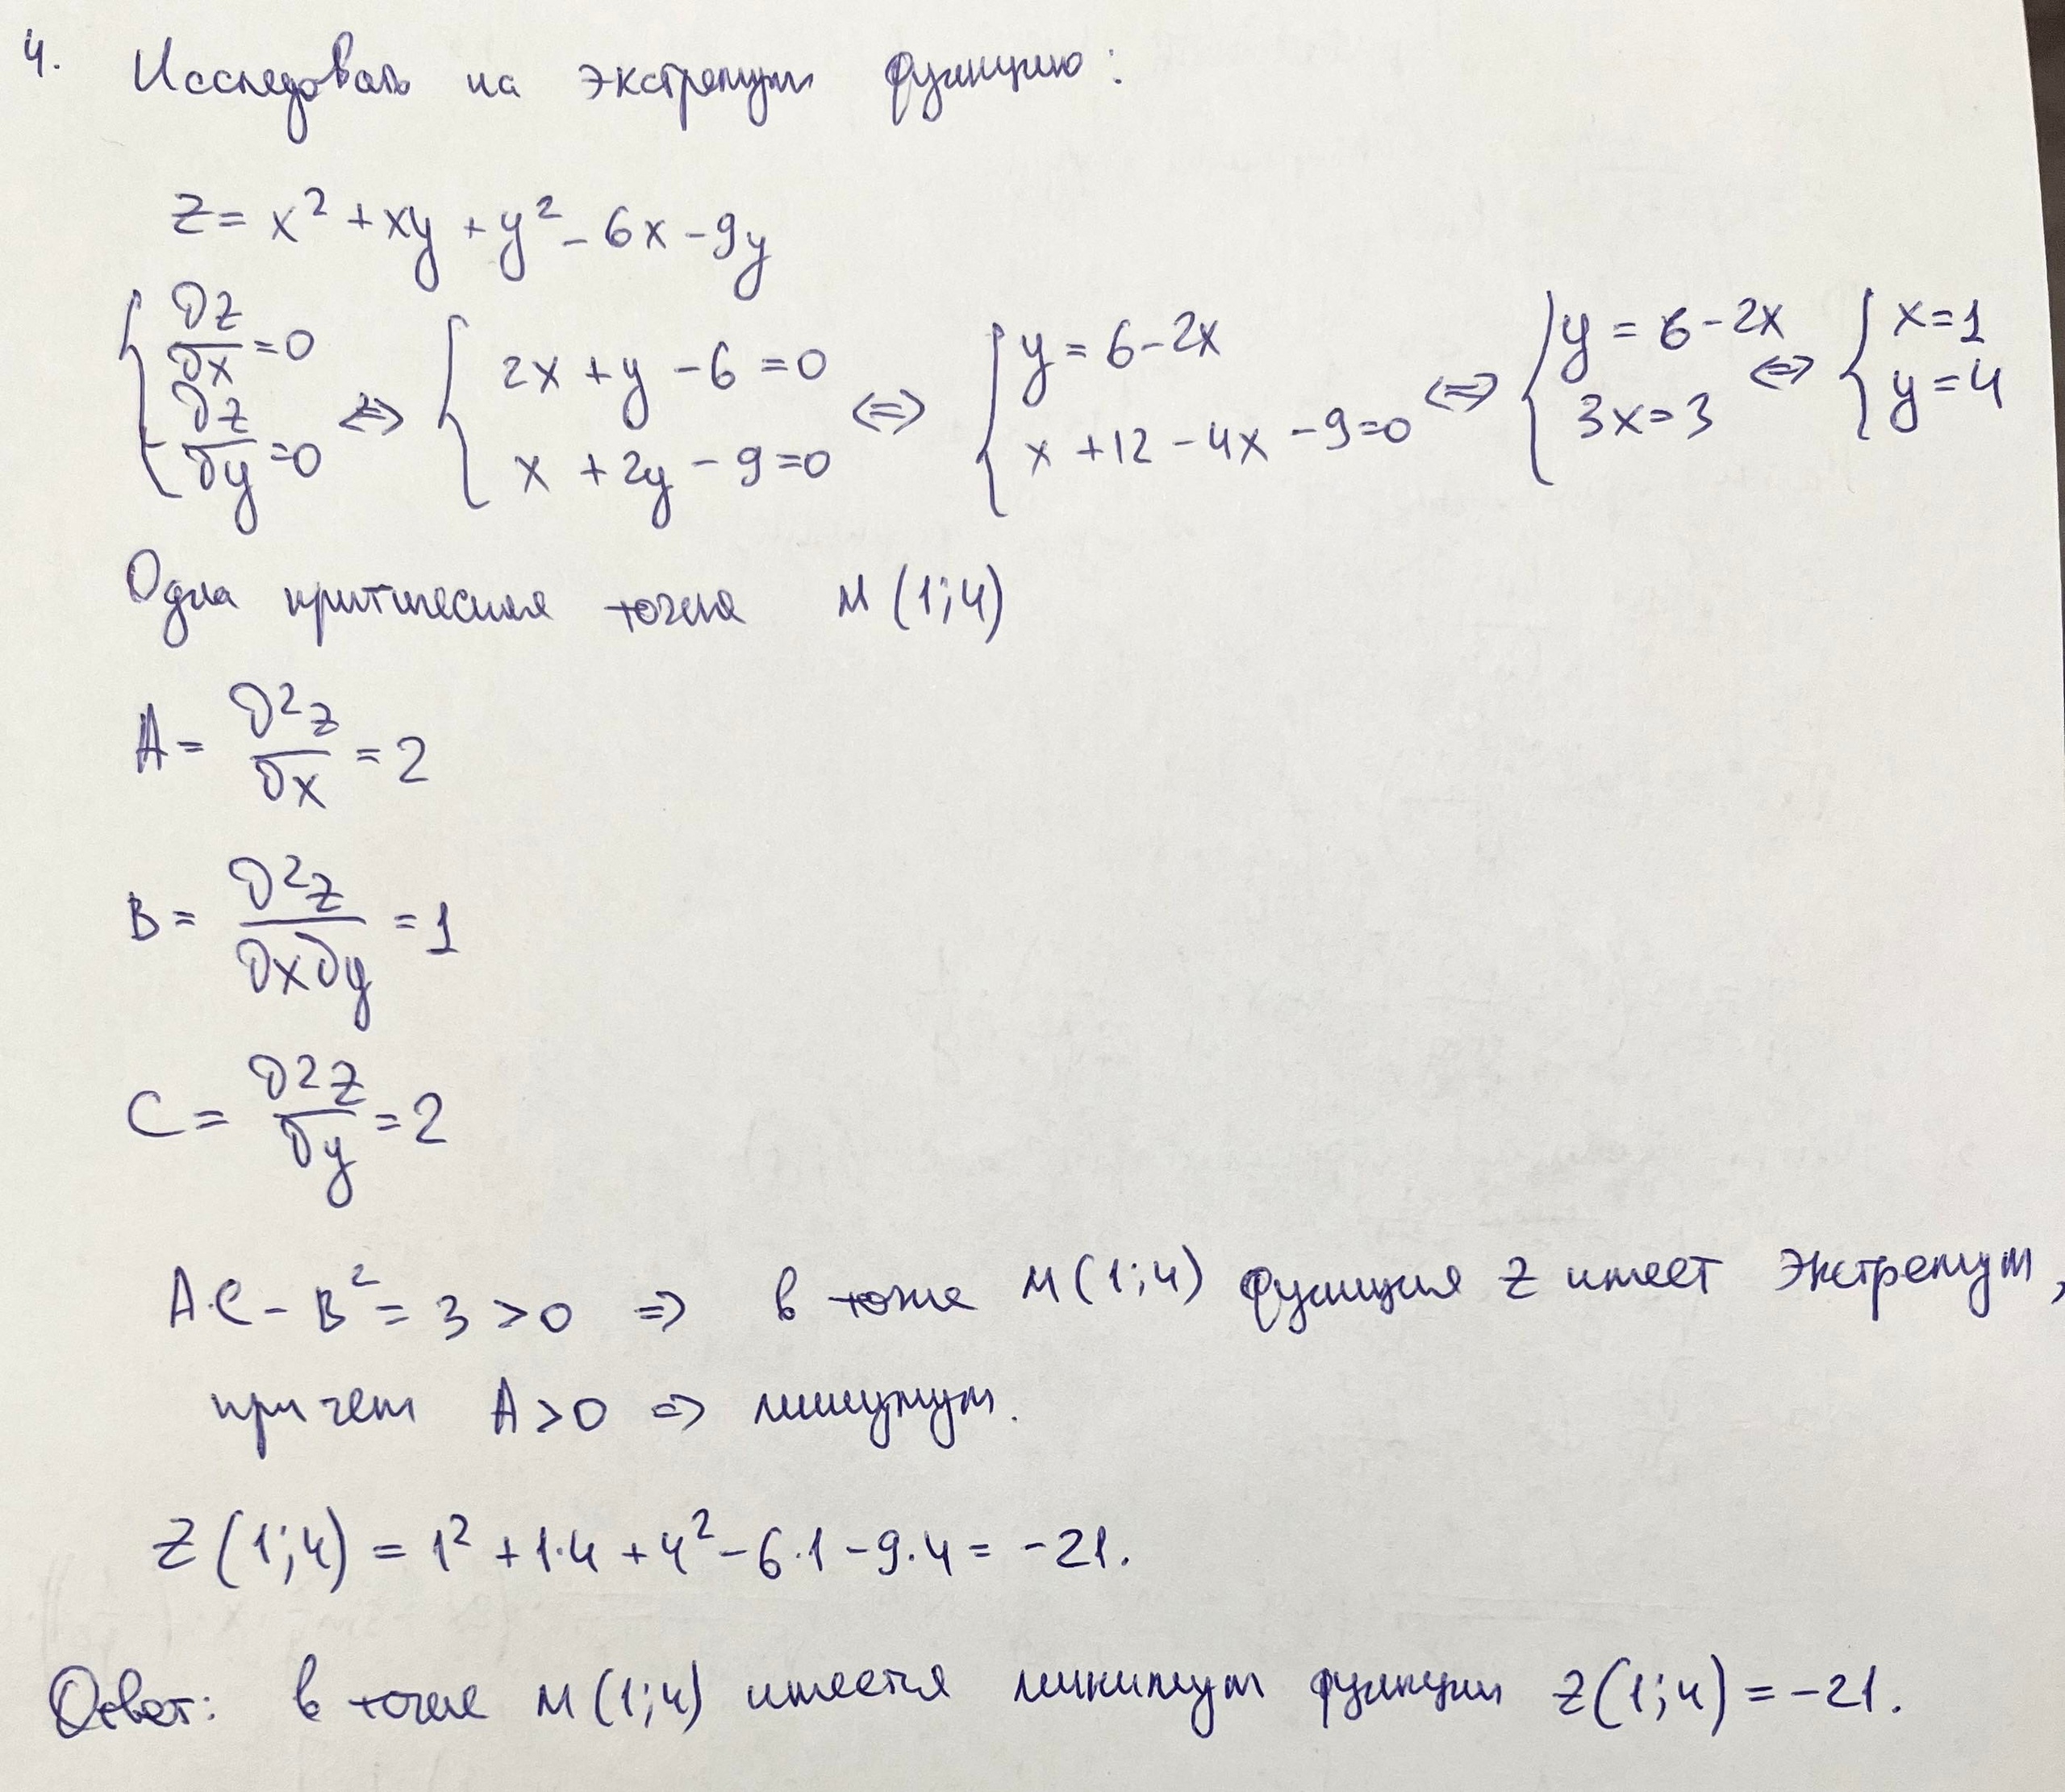 4. Исследовать на экстремум функцию:
z = x² + xy + y² - 6x - 9y
{ ∂z/∂x = 0, ∂z/∂y = 0 ⇔ { 2x + y - 6 = 0, x + 2y - 9 = 0 ⇔ { y = 6 - 2x, x + 12 - 4x - 9 = 0 ⇔ { y = 6 - 2x, 3x = 3 ⇔ { x = 1, y = 4
Одна критическая точка M(1;4)
A = ∂²z/∂x = 2
B = ∂²z/∂x∂y = 1
C = ∂²z/∂y = 2
A·C - B² = 3 > 0 ⇒ в точке M(1;4) функция z имеет экстремум,
причем A > 0 ⇒ минимум.
z(1;4) = 1² + 1·4 + 4² - 6·1 - 9·4 = -21.
Ответ: в точке M(1;4) имеется минимум функции z(1;4) = -21.